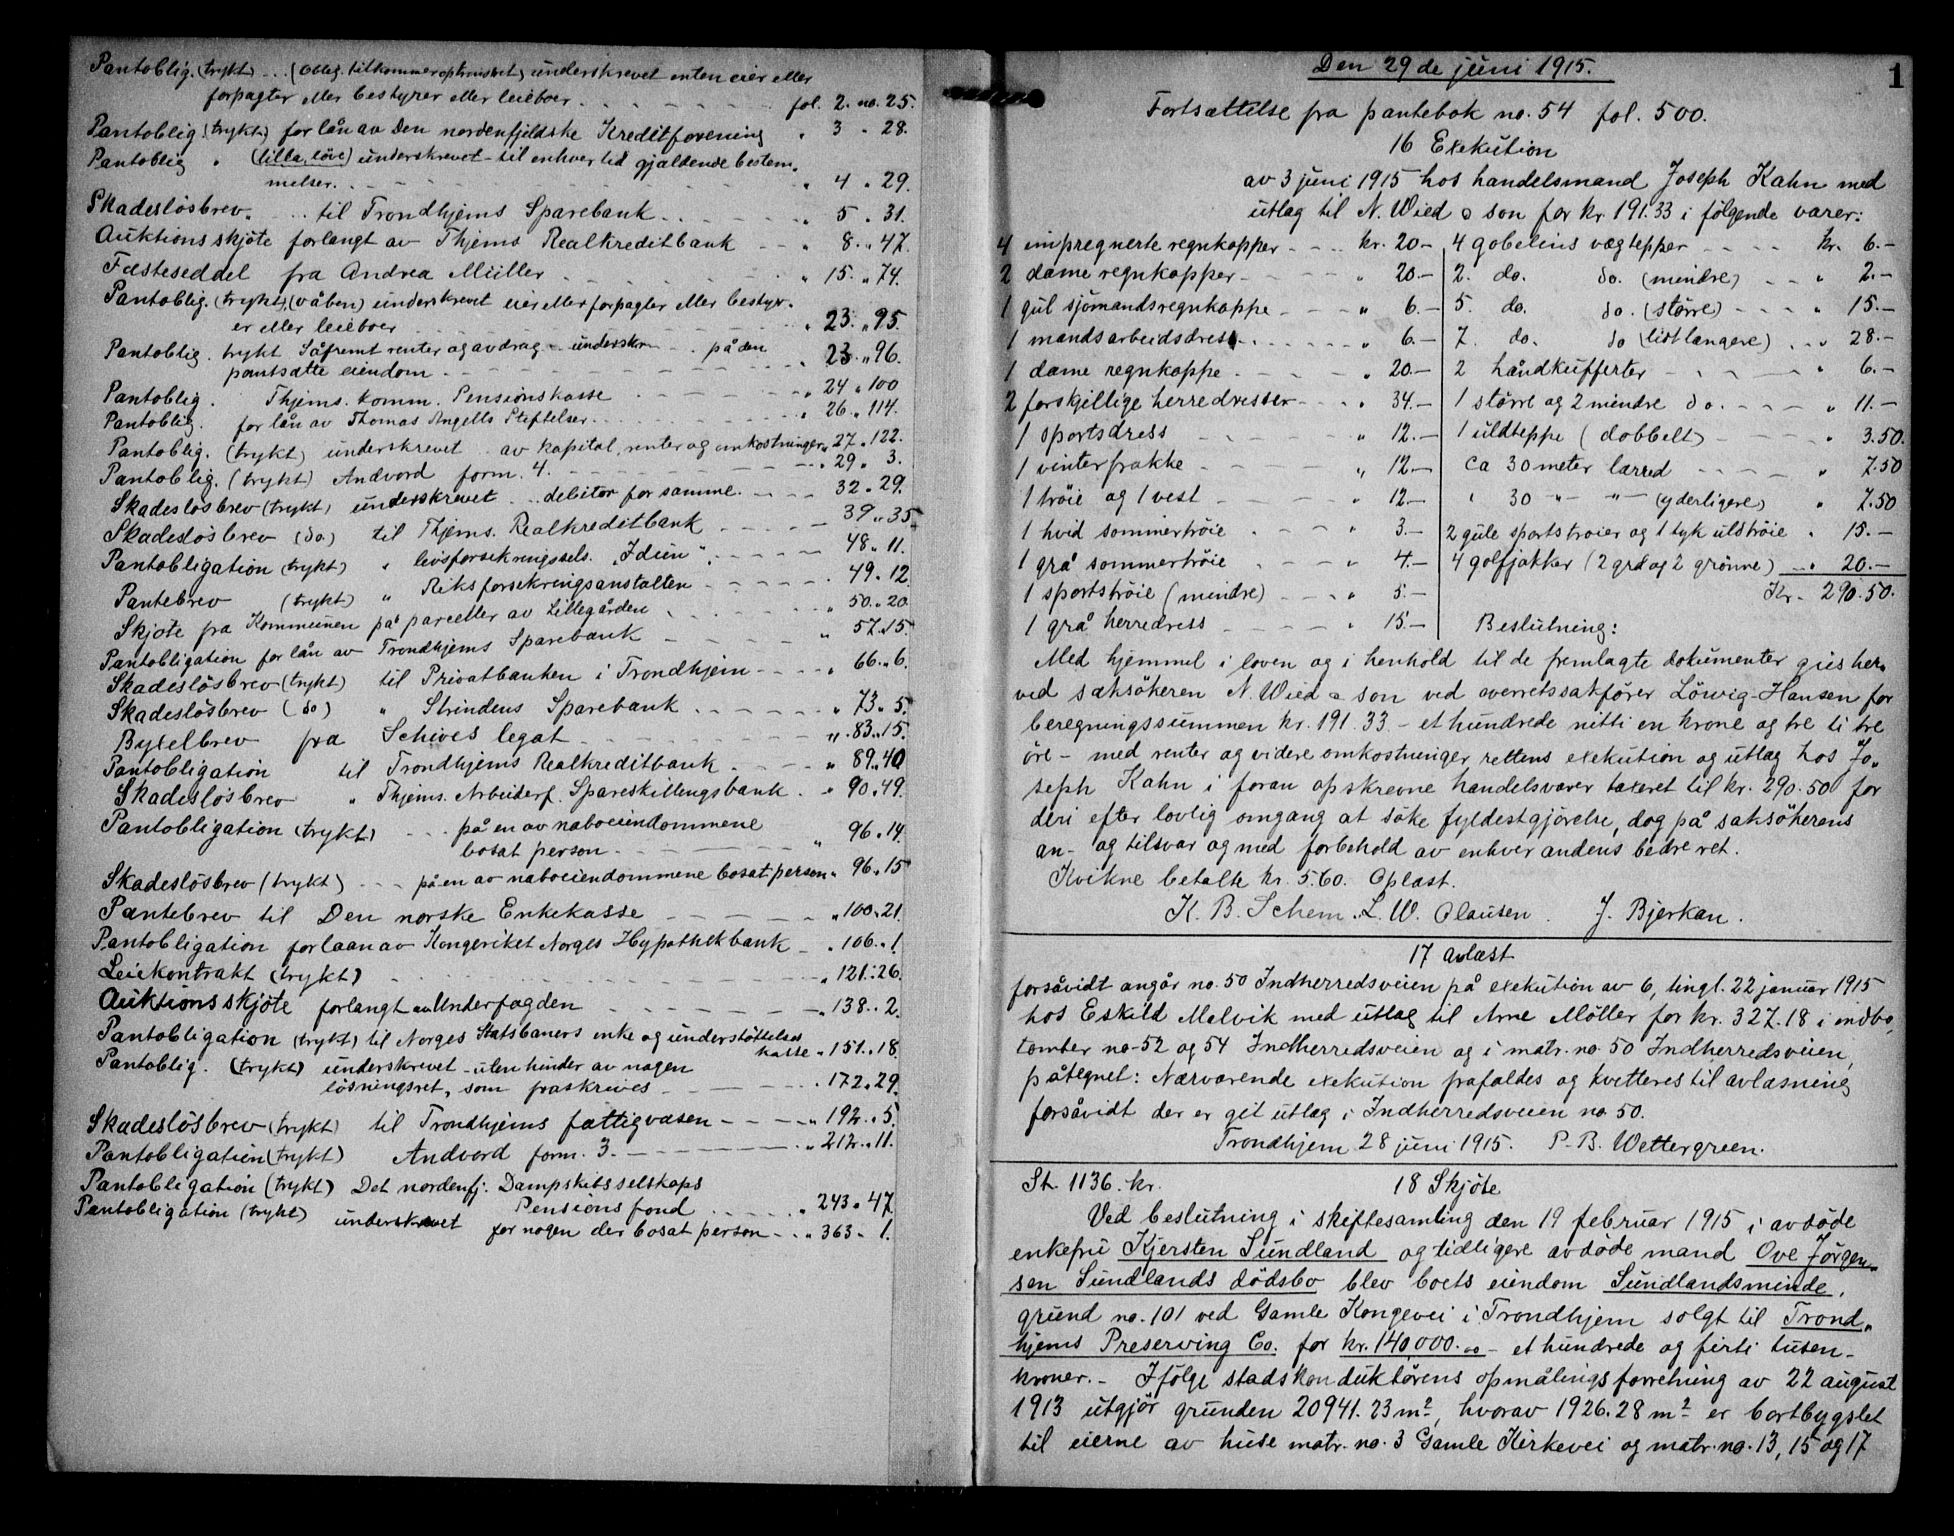 Pantoblig. (trykt) ... (Oblig. tilkommer optrinsret) underskrevet enten eier eller
forpagter eller bestyrer eller leieboer. fol. 2. no. 25.
Pantoblig (trykt) for lån av Den nordenfjeldske Kreditforening " 3 " 28.
Pantoblig " (lilla, löve) underskrevet - til enhver tid gjældende bestem-
melser. " 4 " 29.
Skadeslösbrev. ... til Trondhjems Sparebank " 5 " 31.
Auktionsskjöte forlangt av Thjems Realkreditbank " 8 " 47.
Fæsteseddel fra Andrea Müller " 15. " 74.
Pantoblig. (trykt), (våben) underskrevet eier eller forpagter eller besty-
er eller leieboer " 23. " 95.
Pantoblig. trykt Såfremt renter og avdrag - underskr. - på den
pantsatte eiendom " 23. " 96.
Pantoblig. Thjems. komm. Pensionskasse " 24 " 100
Pantoblig. for lån av Thomas Angells Stiftelser " 26. " 114.
Pantoblig. (trykt) underskrevet av kapital, renter og omkostninger " 27 " 122.
Pantoblig. (trykt) Andvord form. 4. " 29 " 3.
Skadeslösbrev (trykt) underskrevet ... debitor for samme. 32 " 29.
Skadeslösbrev (do) til Thjems. Realkreditbank 39 " 35
Pantobligation (trykt) " livsforsekringssels. "Idun" 48 " 11.
Pantebrev (trykt) " Riksforsekringsanstalten 49 " 12
Skjöte fra Kommunen på parceller av Lillegården " 50. " 20
Pantobligation for lån av Trondhjems Sparebank " 57 " 15.
Skadeslösbrev (trykt) til Privatbanken i Trondhjem " 66 " 6.
Skadeslösbrev (do) " Strindens Sparebank " 73 " 5.
Byxelbrev fra Schives legat " 83 " 15.
Pantobligation til Trondhjems Realkreditbank " 89 " 40
Skadeslösbrev " Thjems. Arbeiderf. Spareskillingsbank " 90 " 49.
Pantobligation (trykt) ... på en av naboeiendommene
bosat person " 96 " 14.
Skadeslösbrev (trykt) ... på en av naboeiendommene bosat person " 96 " 15
Pantebrev til Den norske Enkekasse " 100 " 21.
Pantobligation for laan av Kongeriket Norges Hypothekbank " 106 " 1.
Leiekontrakt (trykt) " 121. 26.
Auktionsskjöte forlangt av Underfogden " 138 " 2.
Pantobligation (trykt) til Norges Statsbaners enke og understöttelses
kasse " 151 " 18.
Pantoblig. (trykt) underskrevet - uten hinder av nogen
lösningsret, som fraskrives " 172 " 29.
Skadeslösbrev (trykt) til Trondhjems fattigvæsen " 192 " 5.
Pantobligation (trykt) Andvord form. 3. " 212 " 11.
Pantobligation (trykt) Det nordenfj. Dampskibsselskaps
Pensionsfond " 243 " 47.
Pantobligation (trykt) underskrevet for nogen der bosat person " 363 " 1.
1
Den 29de juni 1915.
Fortsættelse fra pantebok no. 54 fol. 500.
16 Exekution
av 3 juni 1915 hos handelsmand Joseph Kahn med
utlæg til N. Wied & sön for kr. 191.33 i fölgende varer:
4 impregnerte regnkapper kr. 20 -
2 dame regnkapper " 20. -
1 gul sjömandsregnkappe " 6. -
1 mandsarbeidsdres " 6. -
1 dame regnkappe " 20. -
2 forskjellige herredresser " 34. -
1 sportsdress " 12. -
1 vinterfrakke " 12. -
1 tröie og 1 vest " 12. -
1 hvid sommertröie " 3. -
1 grå sommertröie " 4. -
1 sportströie (mindre) " 5. -
1 grå herredress " 15. -
4 gobelins vægtepper kr. 6. -
2. do. do. (mindre) " 2. -
5. do. do. (större) " 15. -
7. do. do (lidt længere) " 28. -
2 håndkufferter " 6. -
1 större og 2 mindre do. " 11. -
1 uldteppe (dobbelt) " 3.50.
ca 30 meter lærred " 7.50
" 30 - " - " - (yderligere) " 7.50
2 gule sportströier og 1 tyk uldtröie " 15. -
4 golfjakker (2 grå og 2 grönne) " 20. -
Kr. 290.50.
Beslutning:
Med hjemmel i loven og i henhold til de fremlagte dokumenter gies her-
ved saksökeren N. Wied & sön ved overretssakförer Löwig-Hansen for
beregningssummen kr. 191.33 - et hundrede nitti en krone og tre ti tre
öre - med renter og videre omkostninger rettens exekution og utlæg hos Jo-
seph Kahn i foran opskrevne handelsvarer taxeret til kr. 290.50 for
deri efter lovlig omgang at söke fyldestgjörelse, dog på saksökerens
an- og tilsvar og med forbehold av enhver andens bedre ret.
Kvikne betalte kr. 5.60. Oplæst.
K. B. Schem. L. W. Olausen. J. Bjerkan.
17 Avlæst
forsåvidt angår no. 50 Indherredsveien på exekution av 6, tingl. 22 januar 1915
hos Eskild Malvik med utlæg til Arne Möller for kr. 327.18 i indbo,
tomter no. 52 og 54 Indherredsveien og i matr. no 50 Indherredsveien,
påtegnet: Nærværende exekution frafaldes og kvitteres til avlæsning
forsåvidt der er git utlæg i Indherredsveien no. 50.
Trondhjem 28 juni 1915. P. B. Wettergreen.
St. 1136. kr. 18 Skjöte
Ved beslutning i skiftesamling den 19 februar 1915 i avdöde
enkefru Kjersten Sundland og tidligere avdöde mand Ove Jörgen-
sen Sundlands dödsbo blev boets eiendom Sundlandsminde,
grund no. 101 ved Gamle Kongevei i Trondhjem solgt til Trond-
hjems Preserving Co. for kr. 140,000.00 - et hundrede og firti tusen -
kroner. - Ifölge stadskonduktörens opmålingsforretning av 22 august
1913 utgjör grunden 20941.23 m², hvorav 1926.28 m² er bortbygslet
til eierne av huse matr. no. 3 Gamle Kirkevei og matr. no. 13, 15 og 17